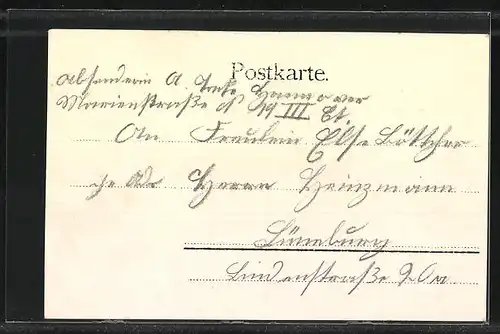 Postkarte.
Absenderin A. Hannover
Marienstraße No 19 III Et.
An Fräulein Else Böttcher
Herrn Heinzmann
Lüneburg
Lindenstraße 20a